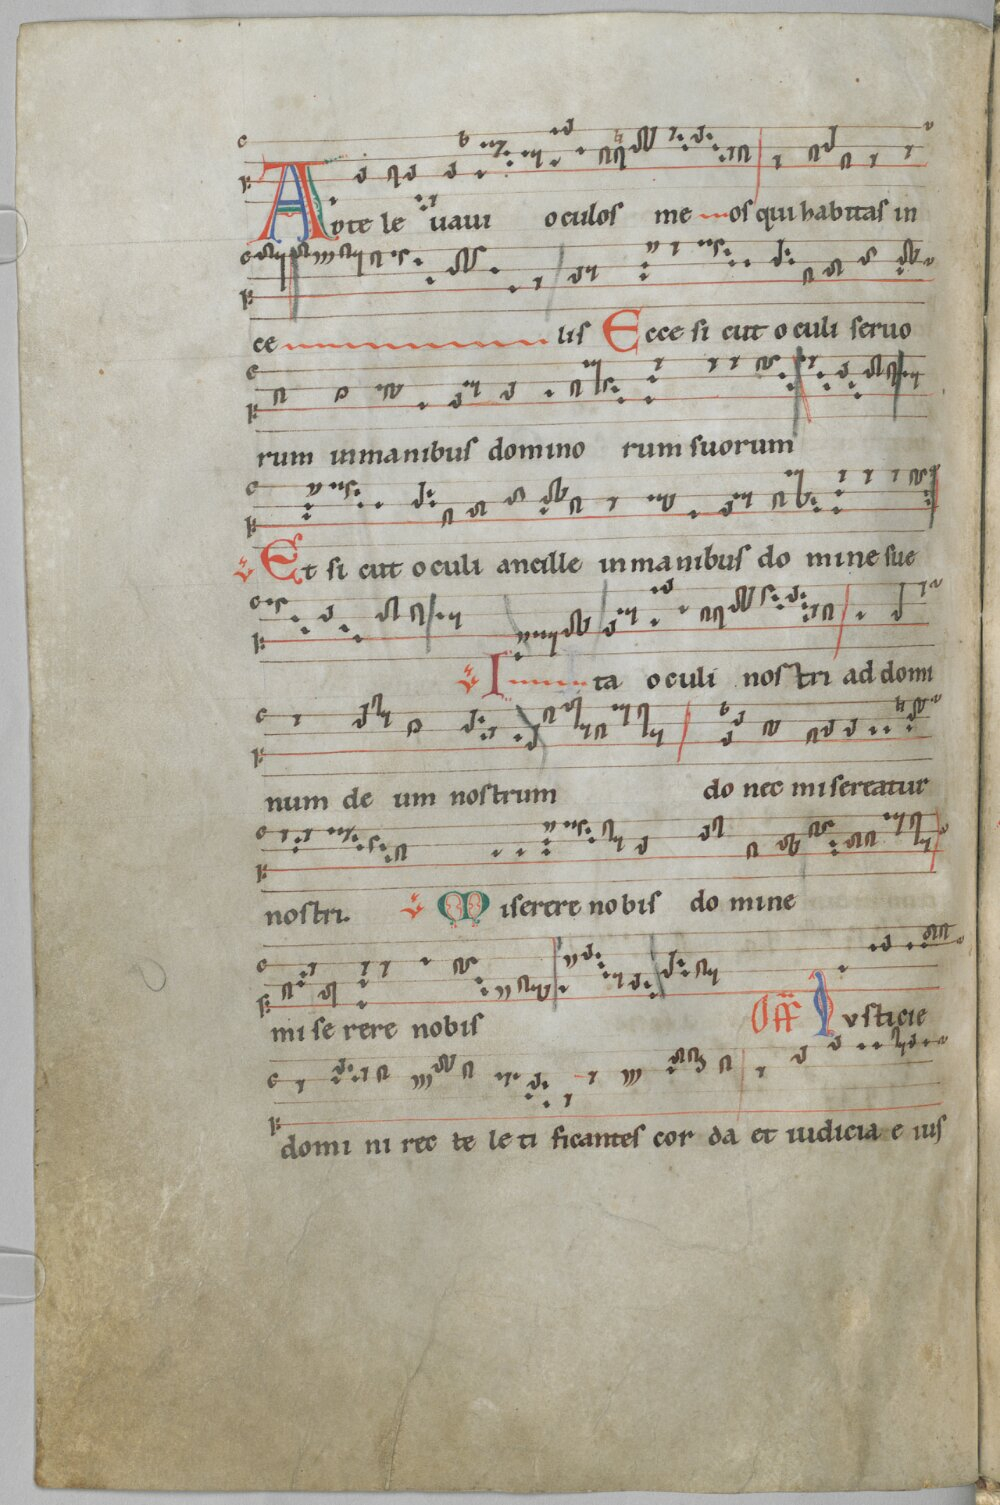 Adte le uaui oculos me os qui habitas in
ce lis Ecce si cut oculi seruo
rum inmanibus domino rum suorum
Et si cut oculi ancille inmanibus do mine sue
I ta oculi nostri ad domi
num de um nostrum do nec misereatur
nostri. Miserere nobis do mine
mi se rere nobis Off Iusticie
domi ni rec te le ti ficantes cor da et iudicia e ius